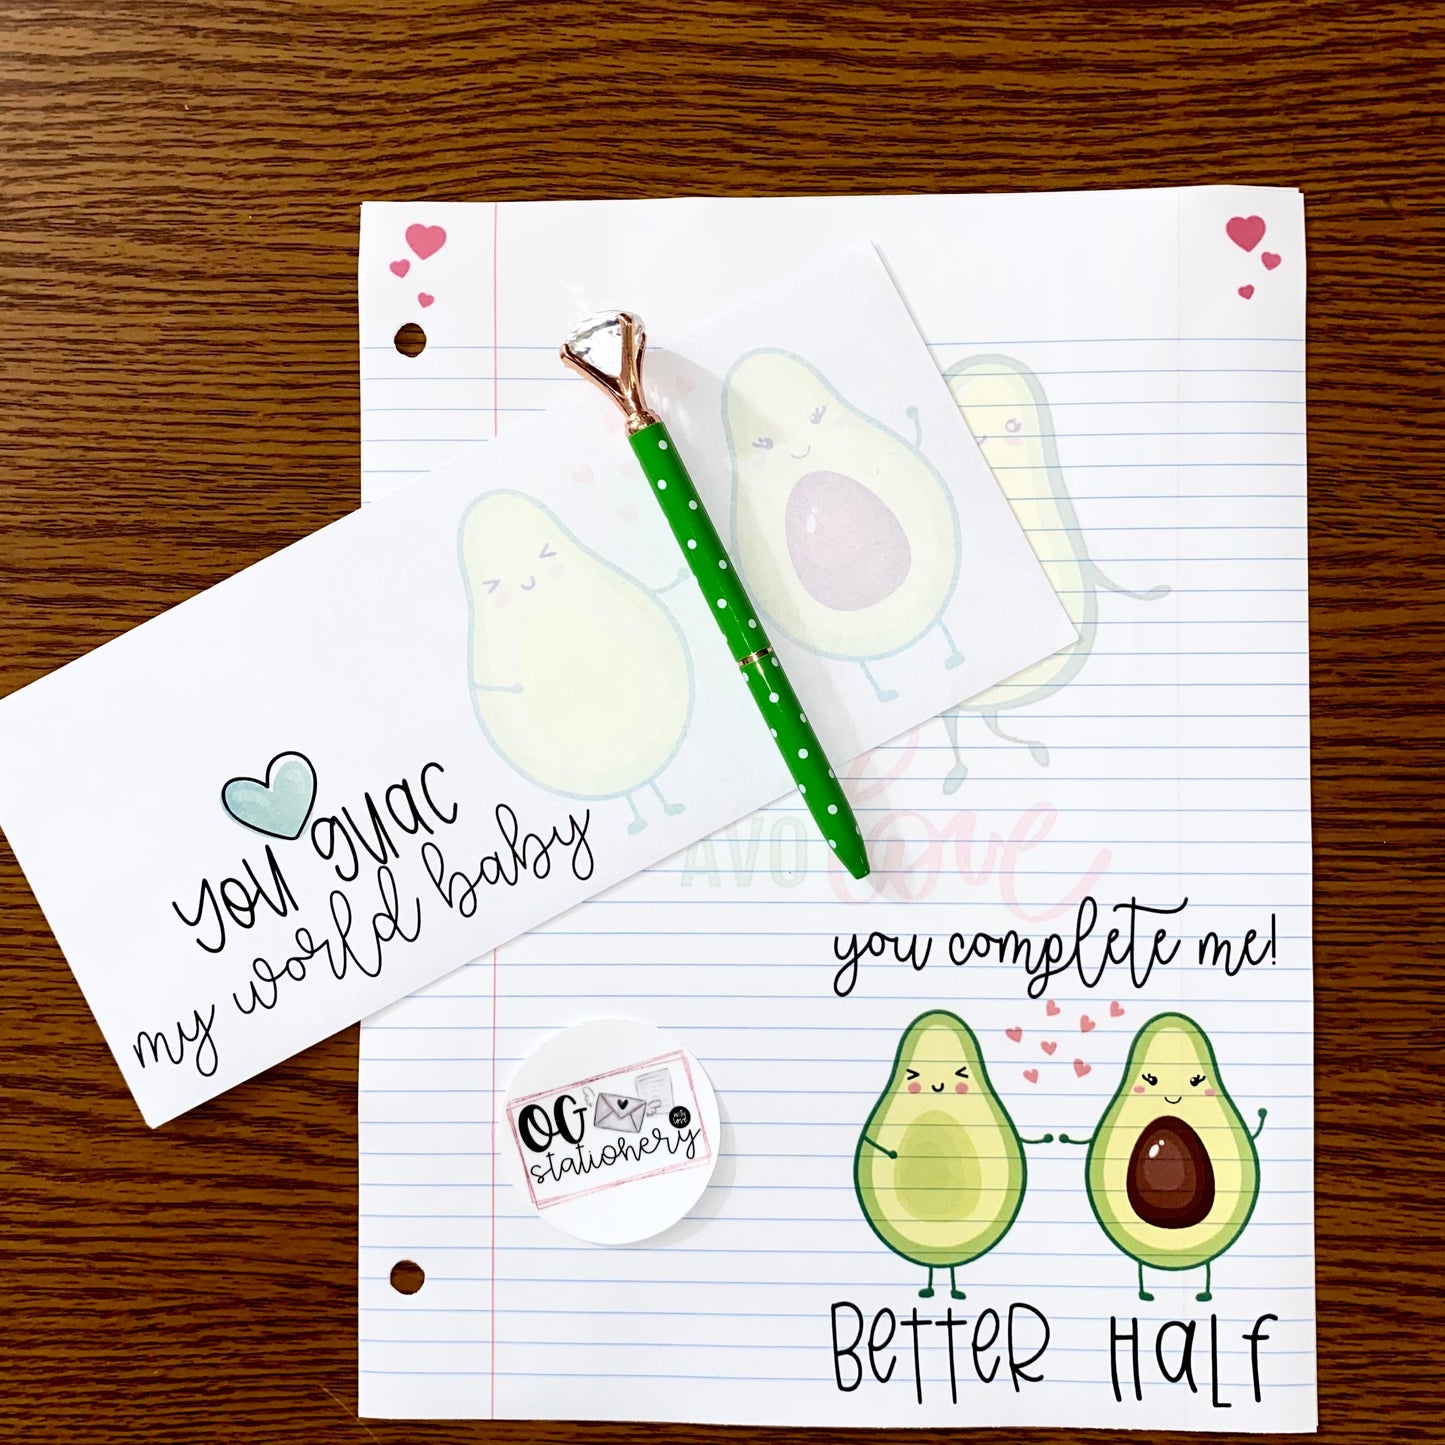 you guac
my world baby
AVO love
you complete me!
OG
stationery
BETTER HALF